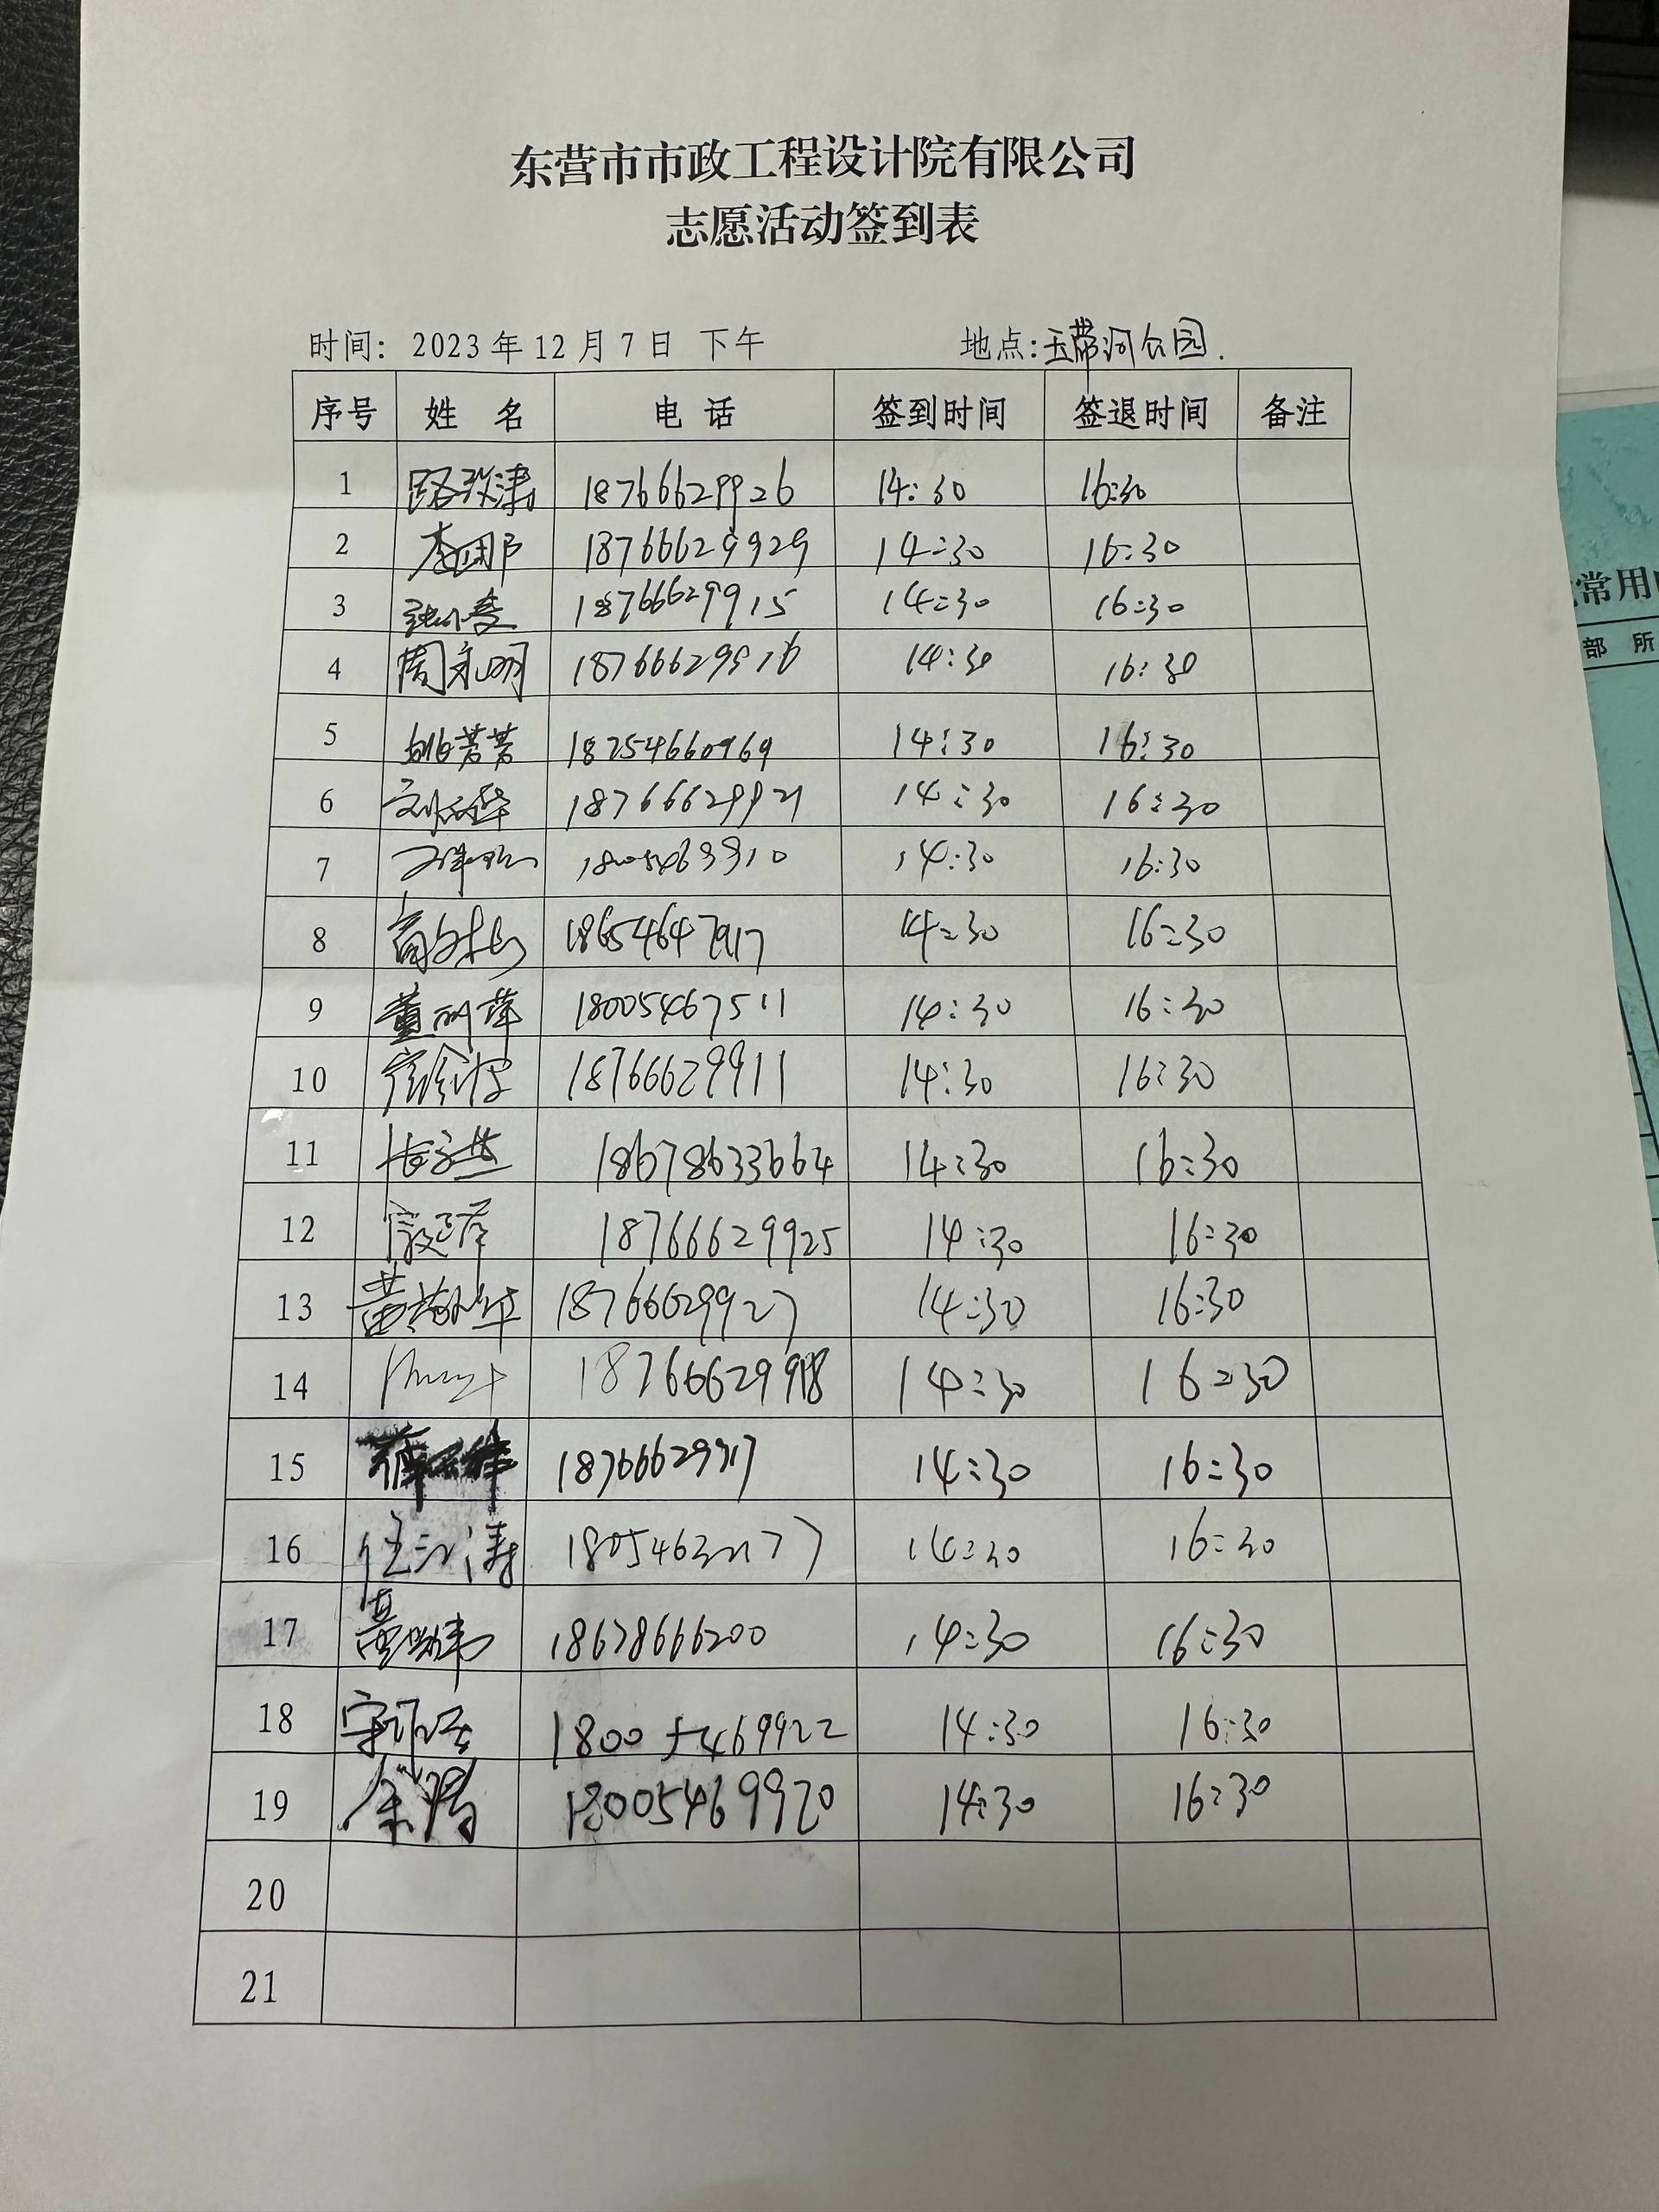 东营市市政工程设计院有限公司
志愿活动签到表
时间: 2023年12月7日 下午 地点:玉带河公园.
序号 姓 名 电 话 签到时间 签退时间 备注
1 18766629926 14:30 16:30
2 18766629929 14:30 16:30
3 18766629915 14:30 16:30
4 周永明 18766629916 14:30 16:30
5 姚芳芳 18254660969 14:30 16:30
6 14:30 16:30
7 14:30 16:30
8 18654647917 14:30 16:30
9 董丽萍 18005467511 14:30 16:30
10 18766629911 14:30 16:30
11 18678633664 14:30 16:30
12 18766629925 14:30 16:30
13 18766629927 14:30 16:30
14 18766629918 14:30 16:30
15 14:30 16:30
16 任江涛 14:30 16:30
17 18678666200 14:30 16:30
18 18005469922 14:30 16:30
19 18005469920 14:30 16:30
20
21
常用
部 所